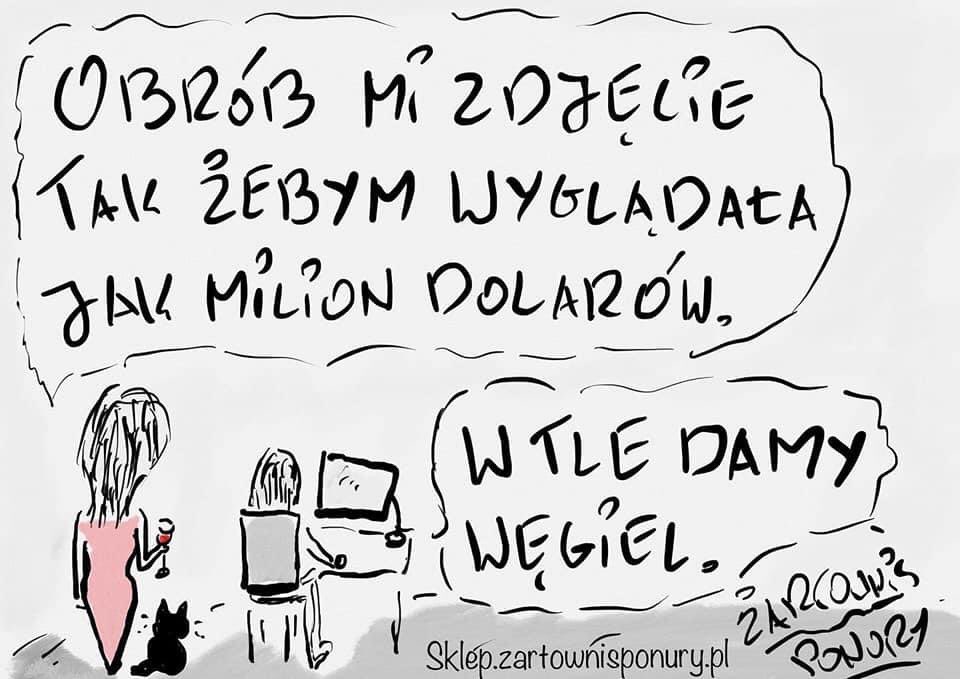 OBRÓB MI ZDJĘCIE
TAK ŻEBYM WYGLĄDAŁA
JAK MILION DOLARÓW.
W TLE DAMY
WĘGIEL.
ŻARTOWNIŚ
PONURY
Sklep.zartownisponury.pl